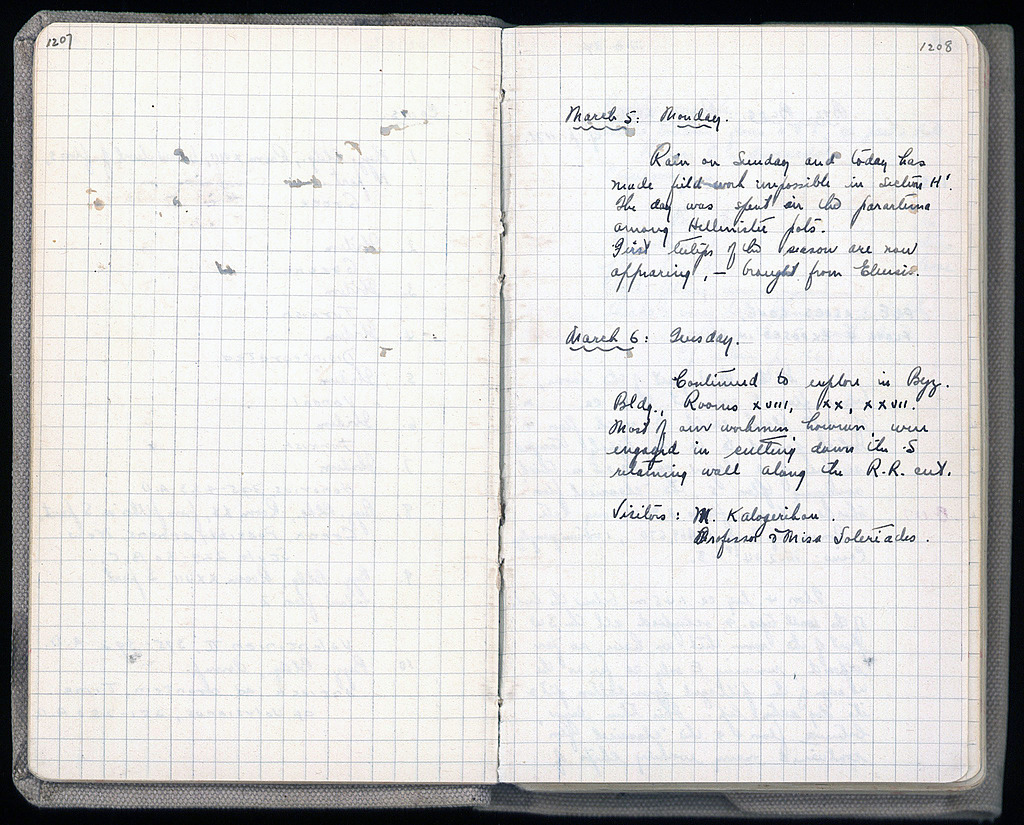 1207
1208
March 5: Monday.
Rain on Sunday and today has
made field-work impossible in Section H'.
The day was spent in the parartema
among Hellenistic pots.
First tulips of the season are now
appearing, — brought from Eleusis.
March 6: Tuesday.
Continued to explore in Byz.
Bldg., Rooms XVIII, XX, XXVII.
Most of our workmen however, were
engaged in cutting down the S
retaining wall along the R.R. cut.
Visitors: M. Kalogerikou.
Professor & Miss Soteriades.